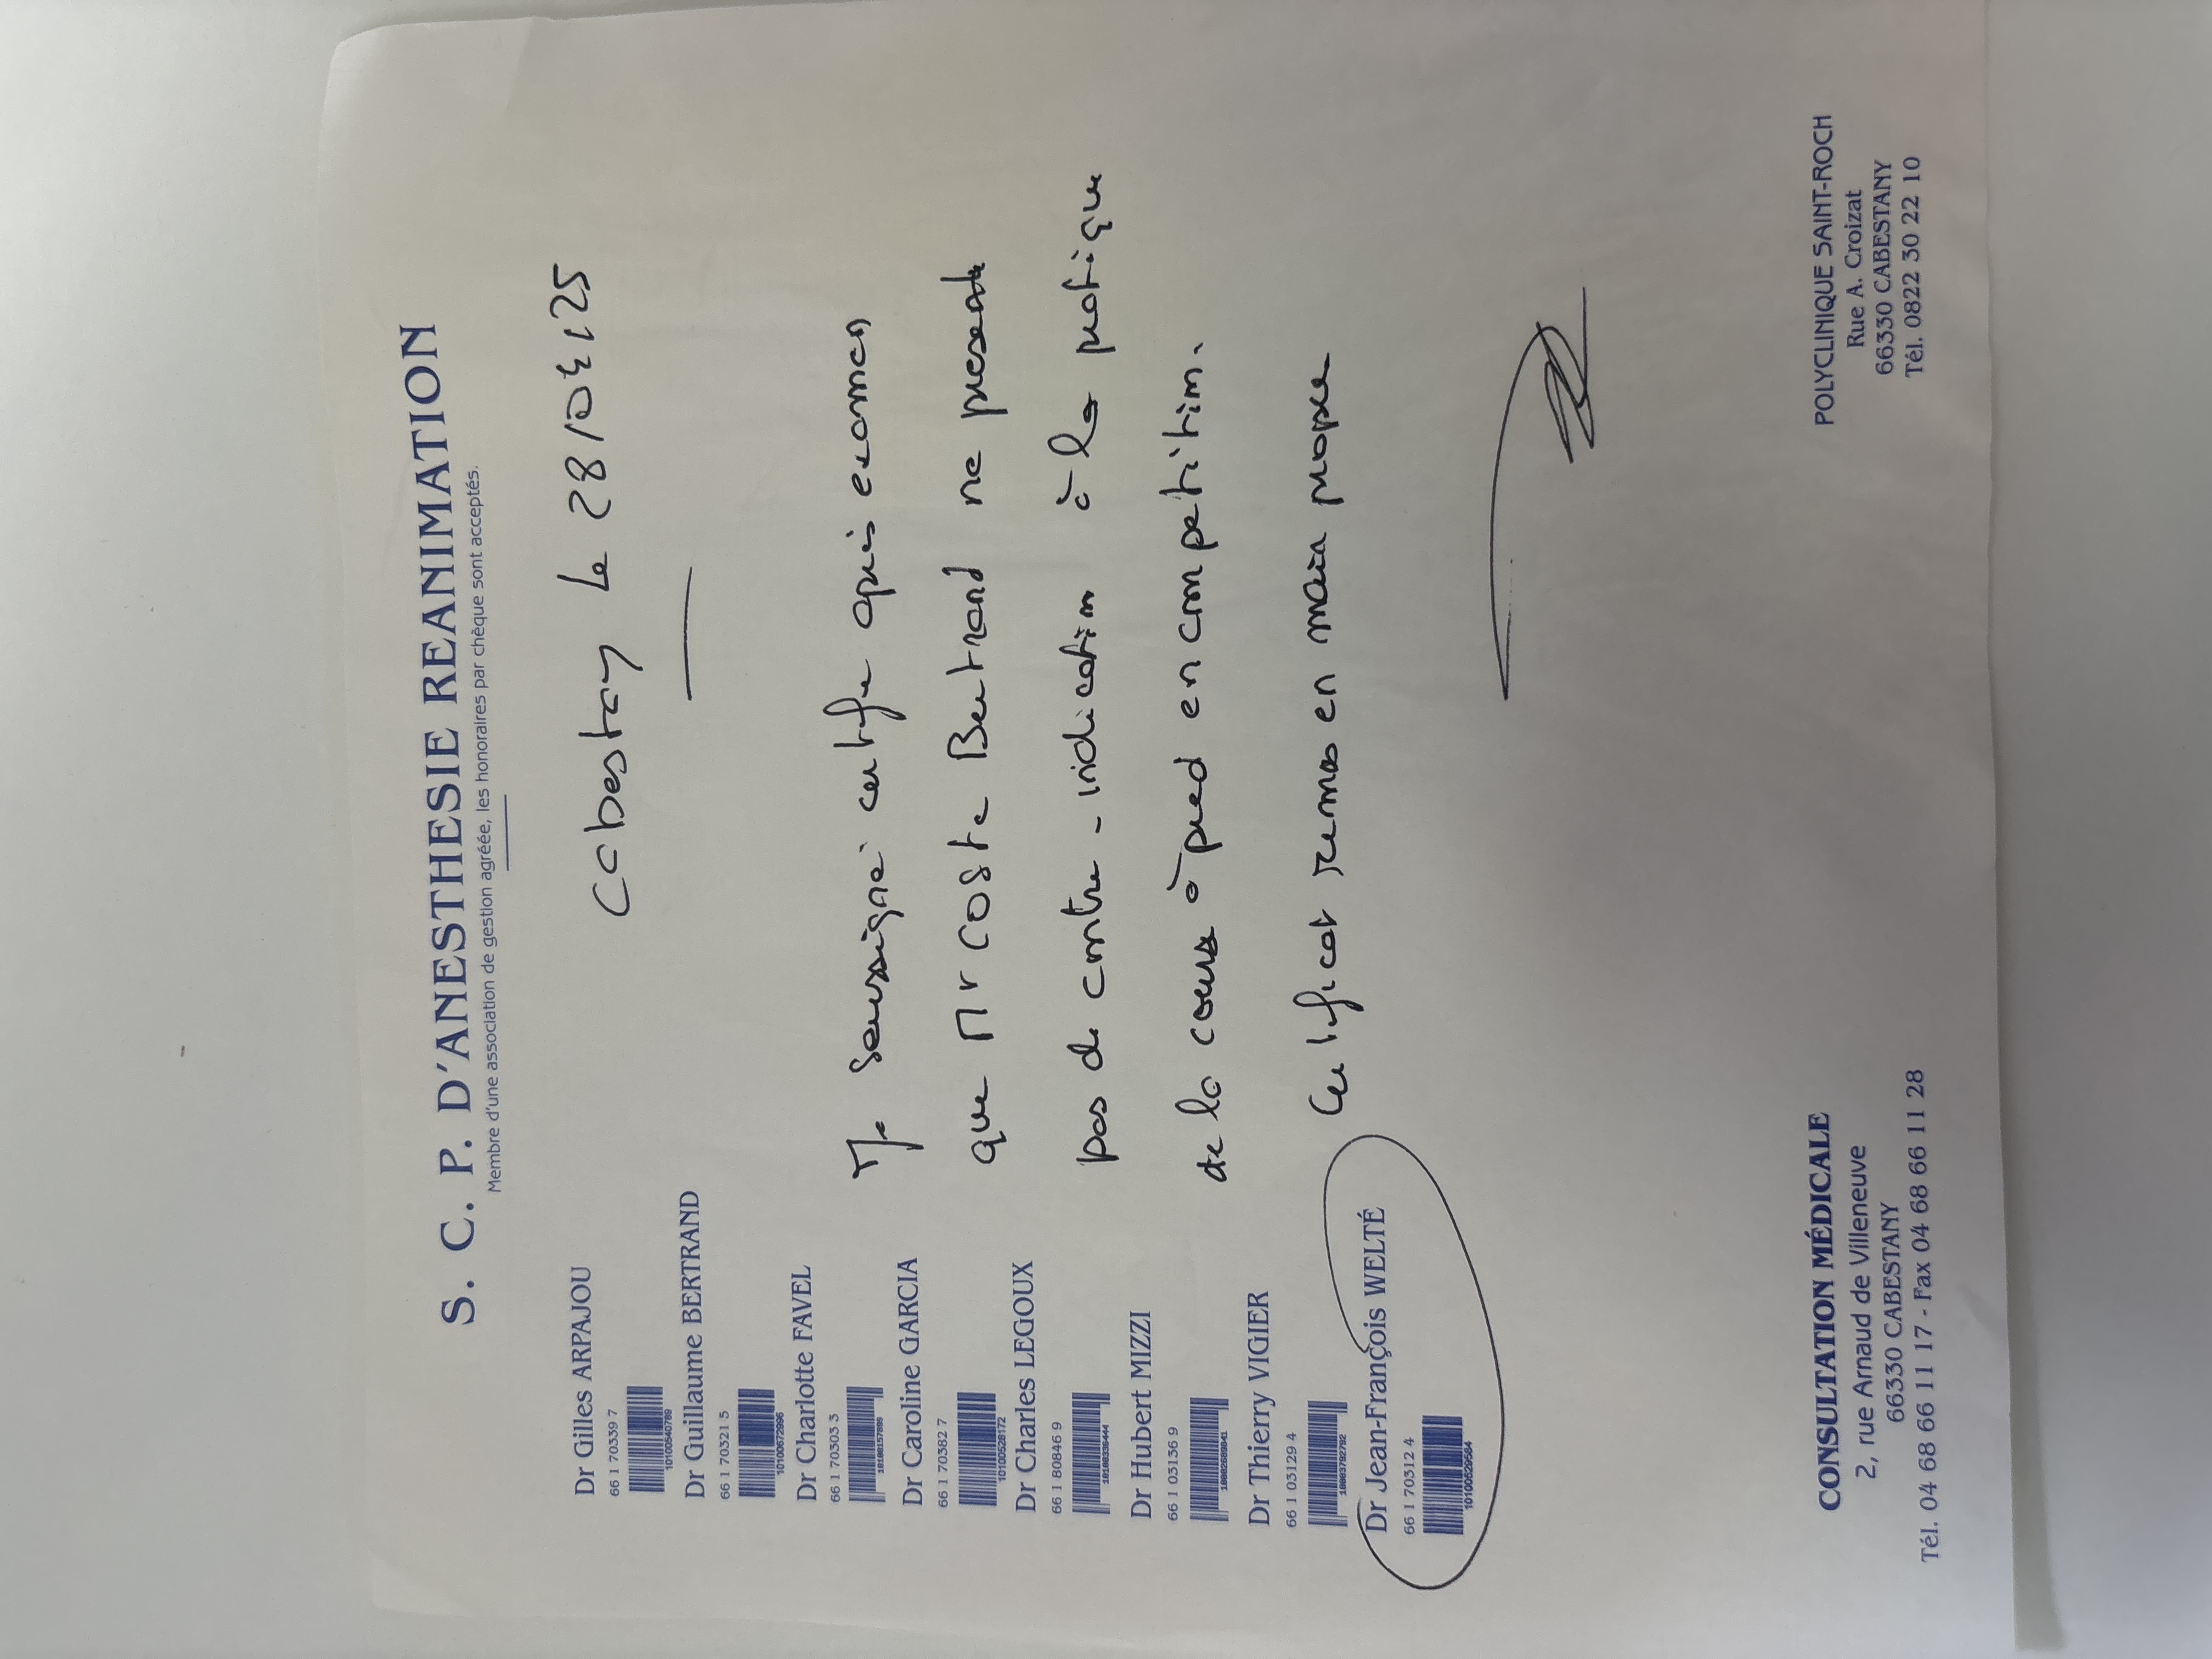 S. C. P. D'ANESTHESIE REANIMATION
Membre d'une association de gestion agréée, les honoraires par chèque sont acceptés.
Cabestany le 28/04/25
Dr Gilles ARPAJOU
66 1 70339 7
10100540789
Dr Guillaume BERTRAND
66 1 70321 5
10100672996
Dr Charlotte FAVEL
66 1 70303 3
Dr Caroline GARCIA
66 1 70382 7
10100528172
Dr Charles LEGOUX
66 1 80846 9
10100336444
Dr Hubert MIZZI
66 1 03136 9
Dr Thierry VIGIER
66 1 03129 4
10003792792
Dr Jean-François WELTÉ
66 1 70312 4
10100529584
Je soussigné certifie après examen
que Mr COSTE Bertrand ne présente
pas de contre-indication à la pratique
de la course à pied en compétition.
Certificat remis en main propre
CONSULTATION MÉDICALE
2, rue Arnaud de Villeneuve
66330 CABESTANY
Tél. 04 68 66 11 17 - Fax 04 68 66 11 28
POLYCLINIQUE SAINT-ROCH
Rue A. Croizat
66330 CABESTANY
Tél. 0822 30 22 10